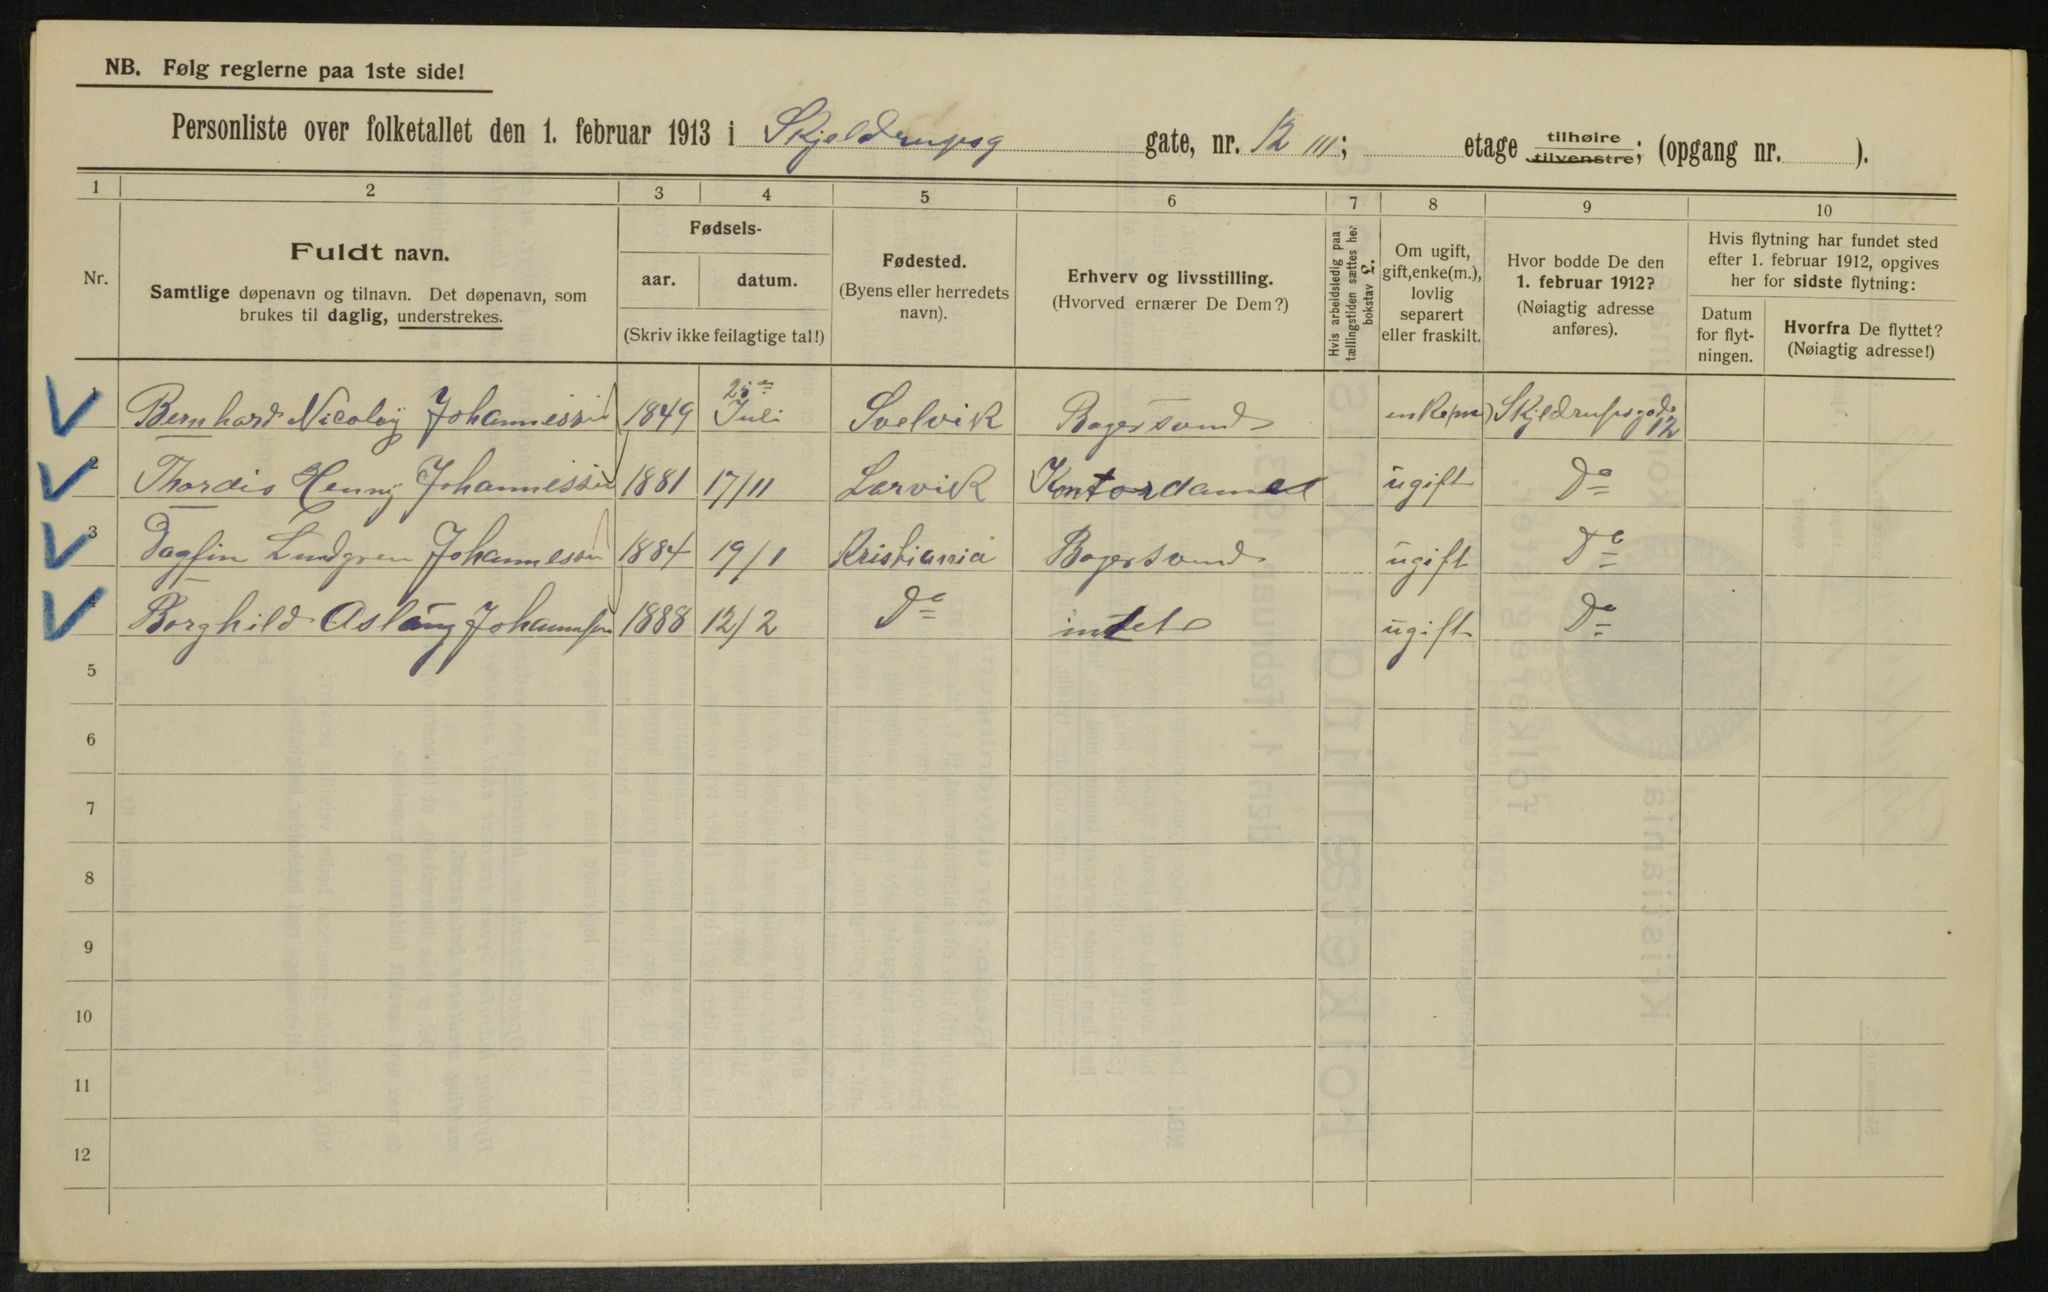 NB. Følg reglerne paa 1ste side!
Personliste over folketallet den 1. februar 1913 i Skjeldrupsg gate, nr. 12 III; etage tilhøire tilvenstre; (opgang nr. ).
1 2 3 4 5 6 7 8 9 10
Nr.
Fuldt navn.
Samtlige døpenavn og tilnavn. Det døpenavn, som
brukes til daglig, understrekes.
Fødsels-
aar. datum.
(Skriv ikke feilagtige tal!)
Fødested.
(Byens eller herredets
navn).
Erhverv og livsstilling.
(Hvorved ernærer De Dem?)
Hvis arbeidsledig paa
tællingstiden sættes her
bokstav L.
Om ugift,
gift, enke(m.),
lovlig
separert
eller fraskilt.
Hvor bodde De den
1. februar 1912?
(Nøiagtig adresse
anføres).
Hvis flytning har fundet sted
efter 1. februar 1912, opgives
her for sidste flytning:
Datum
for flyt-
ningen.
Hvorfra De flyttet?
(Nøiagtig adresse!)
1 Bernhard Nicolay Johannessen 1849 25 Juli Svelvik Bagersvend enke(m) Skjeldrupsgade 12
2 Thordis Henny Johannessen 1881 17/11 Larvik Kontordame ugift Do
3 Dagfin Lundgren Johannessen 1884 19/1 Kristiania Bagersvend ugift Do
4 Borghild Aslaug Johannesen 1888 12/2 Do intet ugift Do
5
6
7
8
9
10
11
12